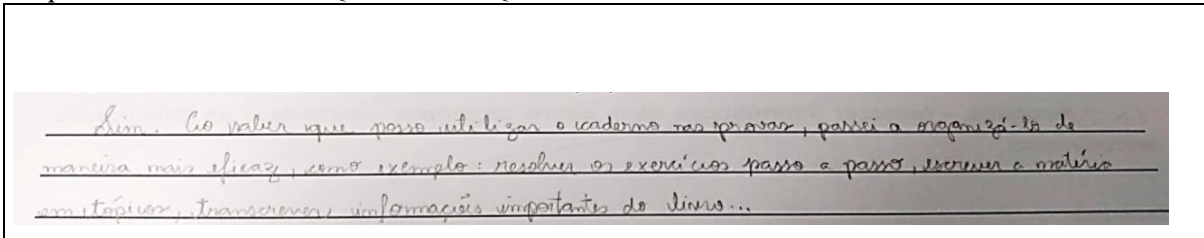 Sim. Ao saber que posso utilizar o caderno nas provas, passei a organizá-lo de
maneira mais eficaz, como exemplo: resolver os exercícios passo a passo, escrever a matéria
em tópicos, transcrever informações importantes do livro...